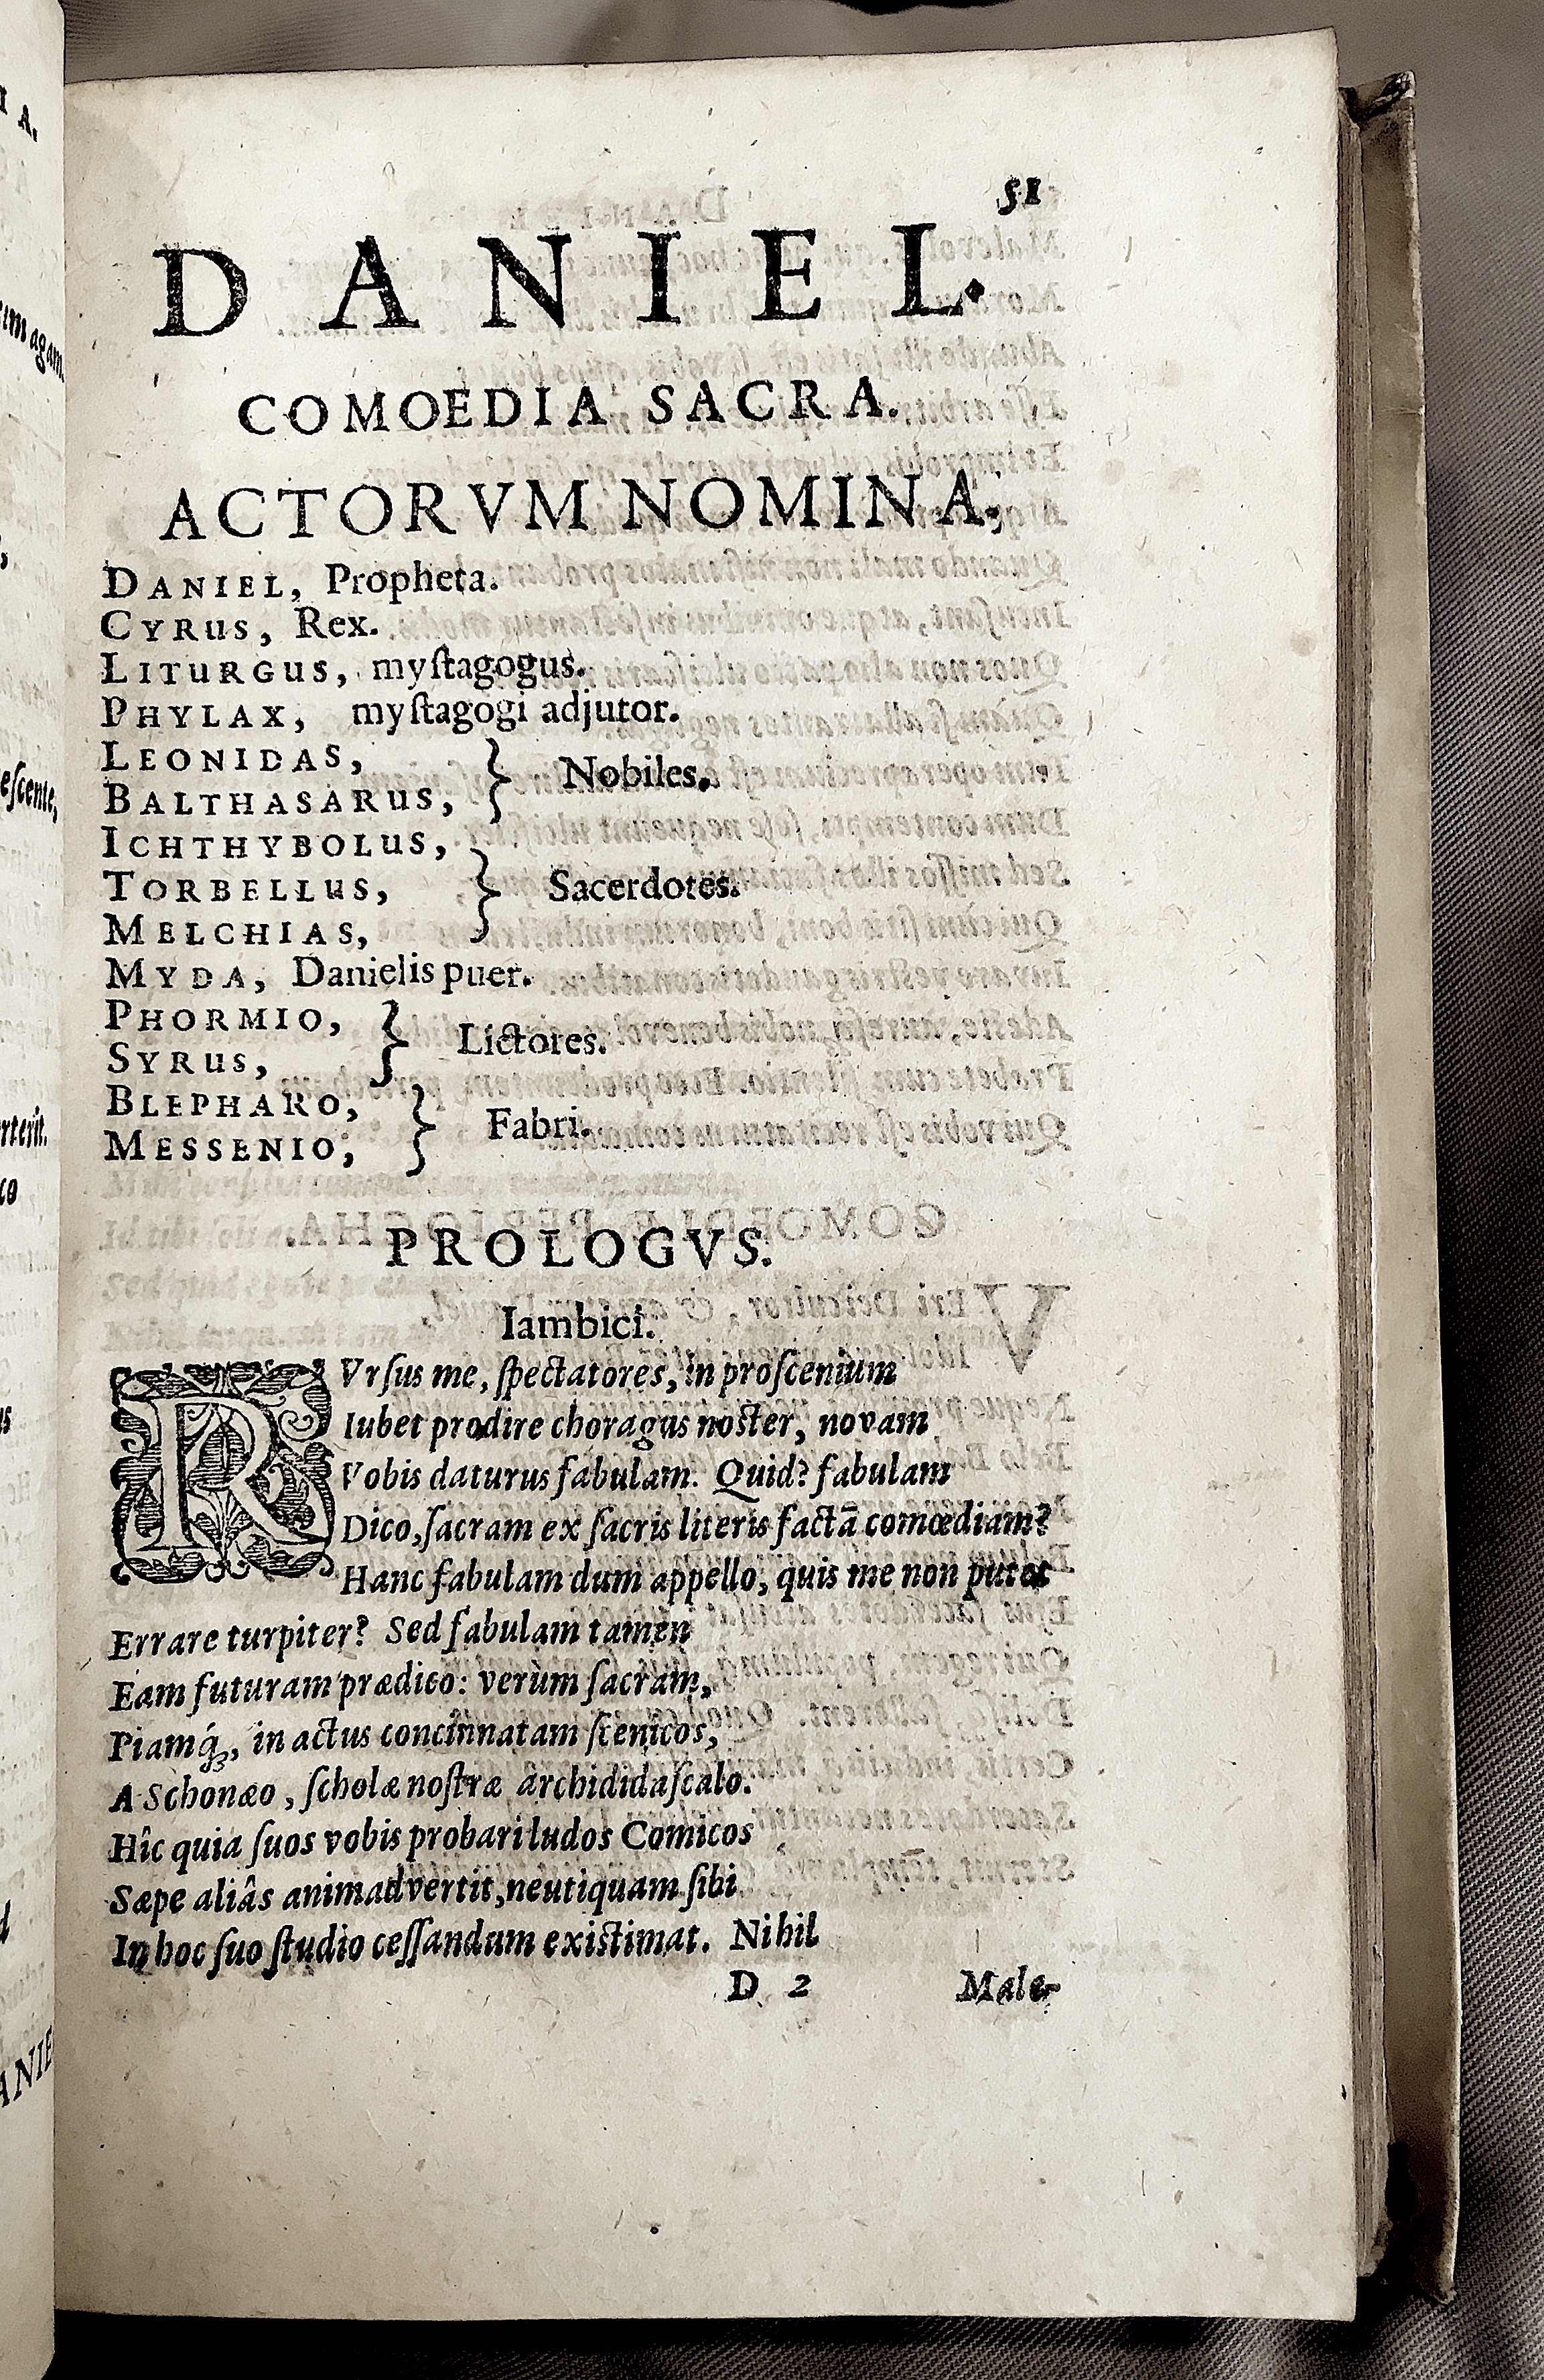 51
DANIEL.
COMOEDIA SACRA.
ACTORVM NOMINA.
DANIEL, Propheta.
CYRUS, Rex.
LITURGUS, myſtagogus.
PHYLAX, myſtagogi adjutor.
LEONIDAS,
BALTHASARUS, } Nobiles.
ICHTHYBOLUS,
TORBELLUS, } Sacerdotes.
MELCHIAS,
MYDA, Danielis puer.
PHORMIO,
SYRUS, } Lictores.
BLEPHARO,
MESSENIO, } Fabri.
PROLOGVS.
Iambici.
RVrſus me, ſpectatores, in proſcenium
Iubet prodire choragus noſter, novam
Vobis daturus fabulam. Quid? fabulam
Dico, ſacram ex ſacris literis factā comœdiam?
Hanc fabulam dum appello, quis me non putet
Errare turpiter? Sed fabulam tamen
Eam futuram prædico: verùm ſacram,
Piamq́ꝫ, in actus concinnatam ſcenicos,
A Schonæo, ſcholæ noſtræ archididaſcalo.
Hîc quia ſuos vobis probari ludos Comicos
Sæpe aliâs animadvertit, neutiquam ſibi
In hoc ſuo ſtudio ceſſandum exiſtimat. Nihil
D 2 Male-
I A.
um agam.
eſcente,
rterit.
co
us
d
ANIE